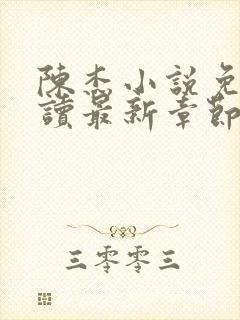 陳杰小說免
讀最新章節
三零零三